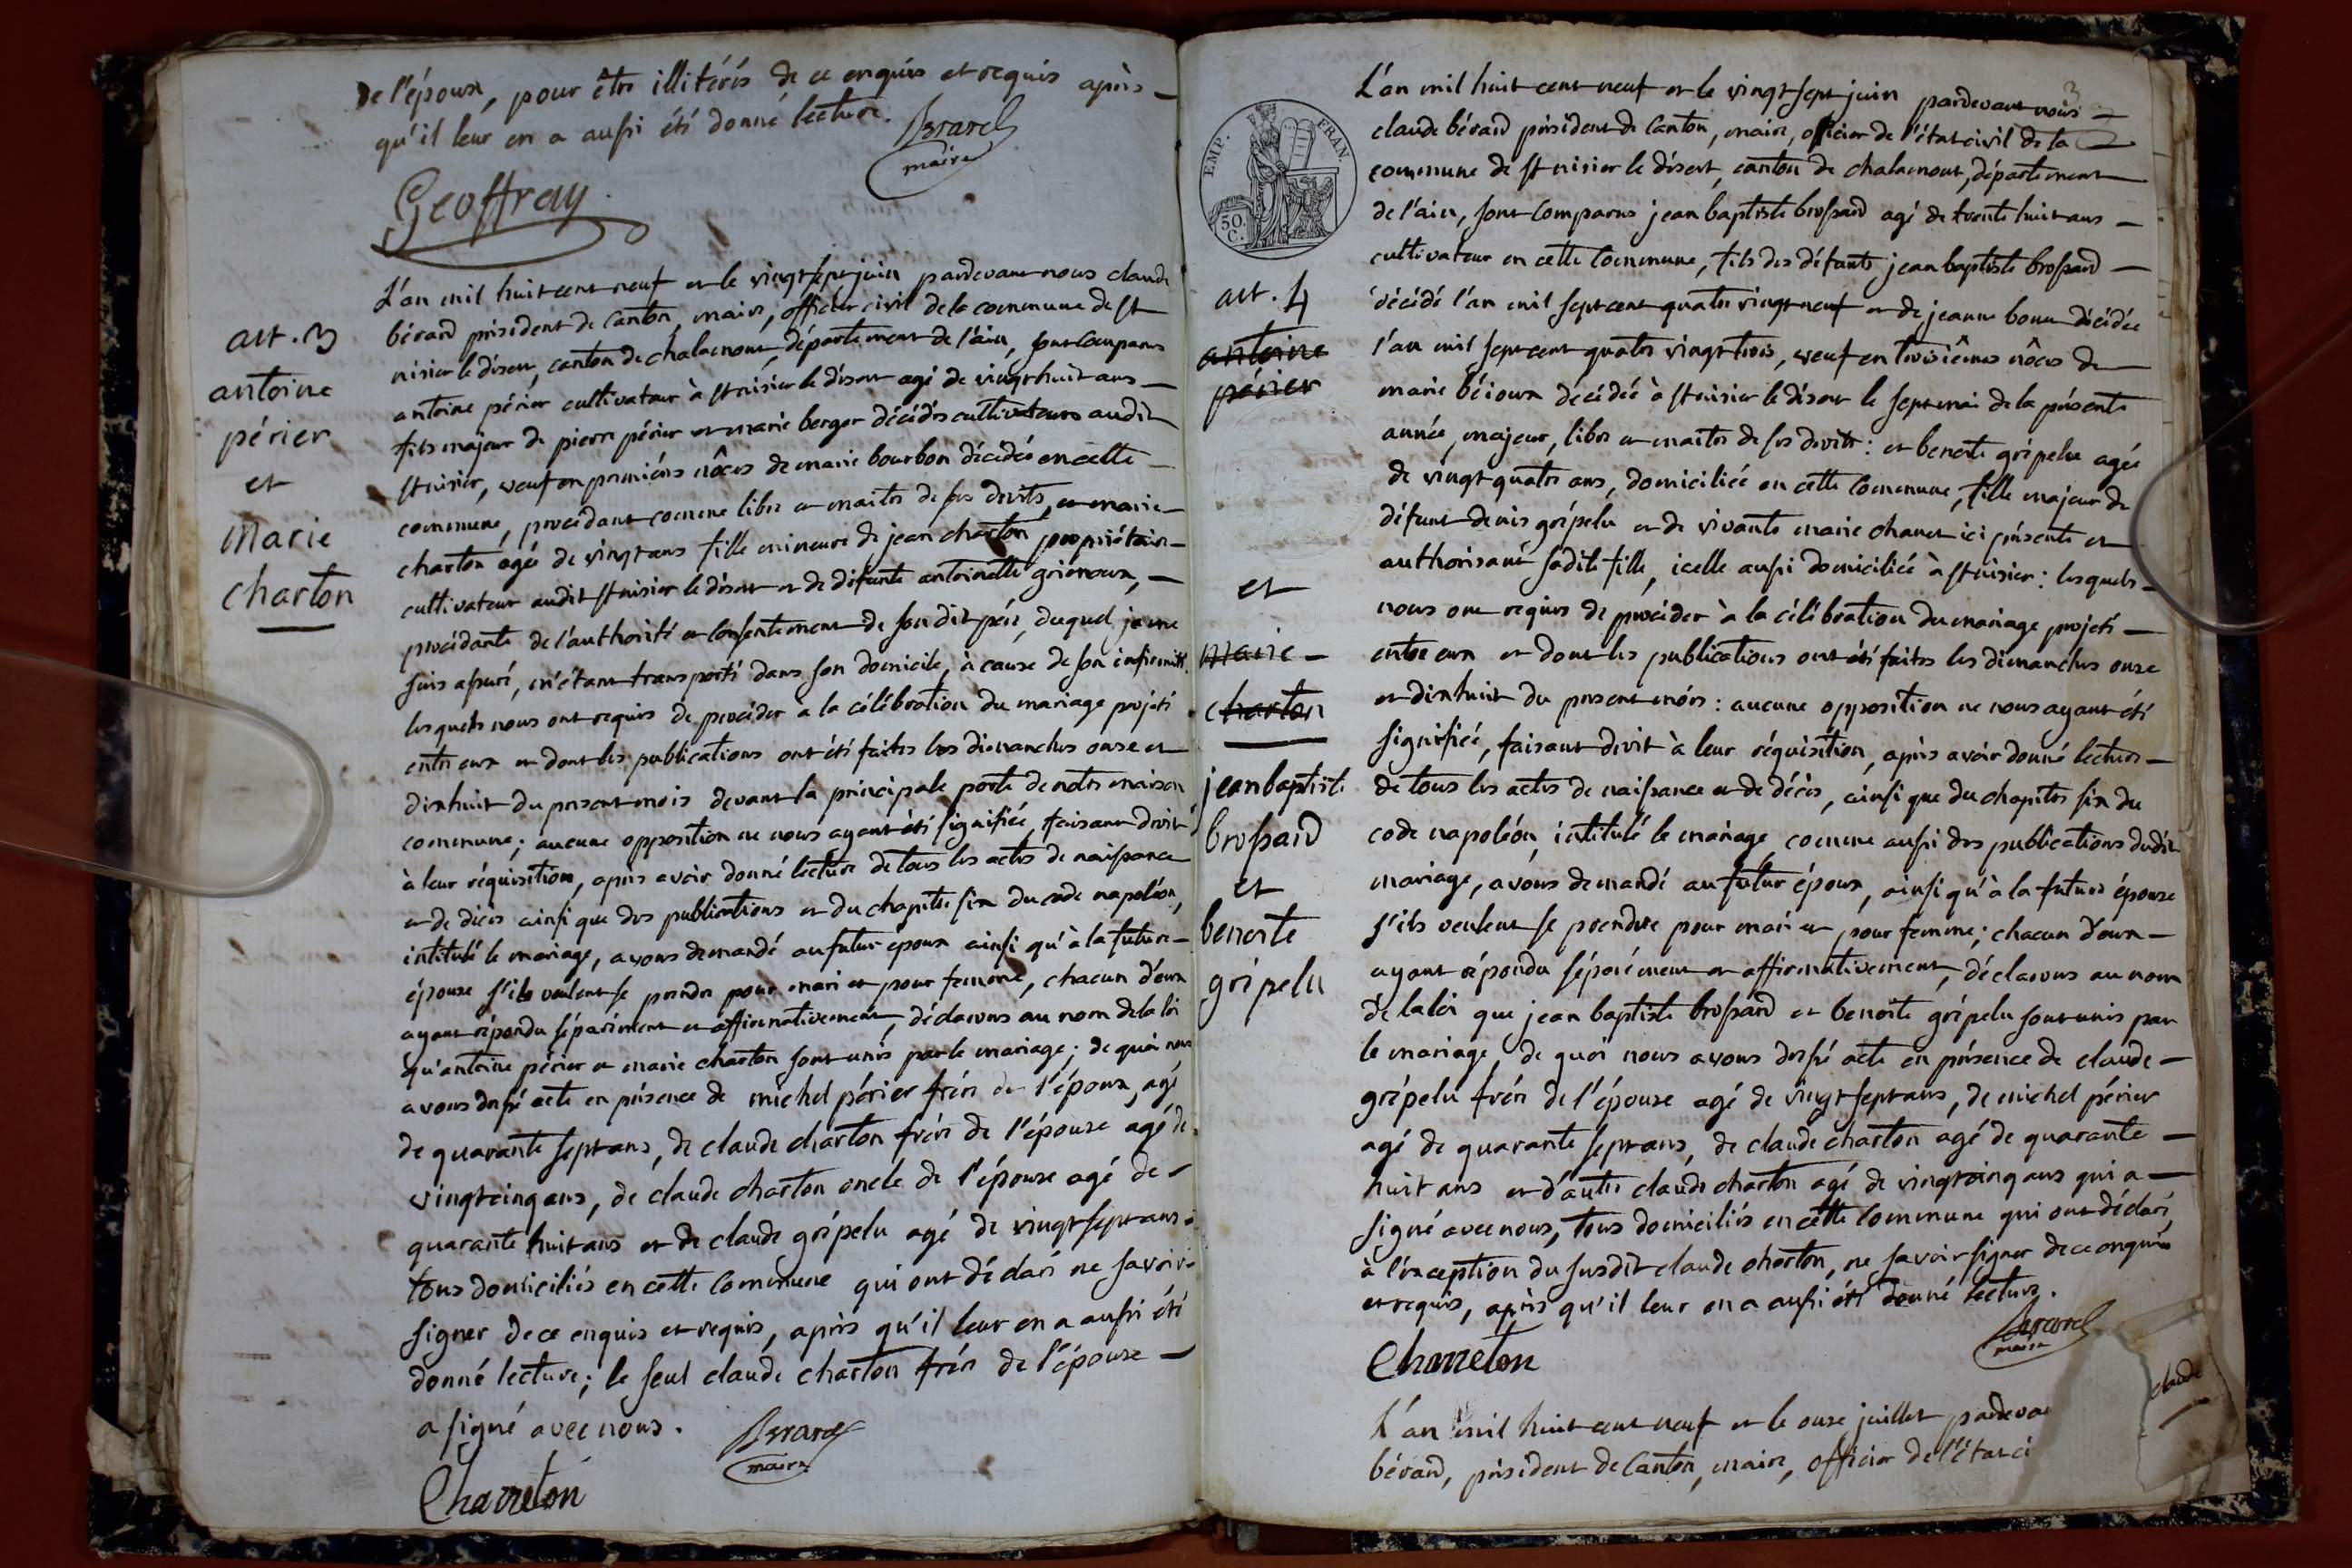 De l'époux, pour être illitérés de ce enquis et requis après
qu'il leur en a aussi été donné lecture.
Berard
maire
Geoffray
art. 3
antoine
périer
et
Marie
charton
L'an mil huit cent neuf et le vingt sept juin pardevant nous claude
bérard président de canton, maire, officier civil de la commune de st
nisier le désert, canton de chalamont, département de l'ain, sont comparus
antoine périer cultivateur à st nisier le désert agé de vingt huit ans
fils majeur de pierre périer et marie berger décédés cultivateurs audit
st nisier, veuf en premières nôces de marie bourbon décédée en cette
commune, procédant comme libre et maitre de ses droits, et marie
charton agée de vingt ans fille mineure de jean charton propriétaire
cultivateur audit st nisier le désert et de défunte antoinette
procédante de l'authorité et consentement de son dit père, duquel je me
suis assuré, m'étant transporté dans son domicile, à cause de son infirmité
lesquels nous ont requis de procéder à la célébration du mariage projeté
entre eux et dont les publications ont été faites les dimanches onze et
dixhuit du présent mois devant la principale porte de notre maison
commune; aucune opposition ne nous ayant été signifiée, faisant droit
à leur réquisition, après avoir donné lecture de tous les actes de naissance
et de décès ainsi que des publications et du chapitre six du code napoléon,
intitulé le mariage, avons demandé au futur époux ainsi qu'à la future
épouse s'ils veulent se prendre pour mari et pour femme, chacun d'eux
ayant répondu séparément et affirmativement, déclarons au nom de la loi
qu'antoine périer et marie charton sont unis par le mariage; de quoi nous
avons dressé acte en présence de michel périer frère de l'époux, agé
de quarante sept ans, de claude charton frère de l'épouse agé de
vingt cinq ans, de claude charton oncle de l'épouse agé de
quarante huit ans et de claude grépelu agé de vingt sept ans
tous domiciliés en cette commune qui ont déclaré ne savoir
signer de ce enquis et requis, après qu'il leur en a aussi été
donné lecture; le seul claude charton frère de l'épouse
a signé avec nous.
Berard
maire
Charreton
EMP. FRAN.
50.
C.
art. 4
antoine
périer
et
marie
charton
jean baptiste
brossard
et
benoite
grépelu
L'an mil huit cent neuf et le vingt sept juin pardevant nous
claude bérard président de canton, maire, officier de l'état civil de la
commune de st nisier le désert, canton de chalamont, département
de l'ain, sont comparus jean baptiste brossard agé de trente huit ans
cultivateur en cette commune, fils des défunts jean baptiste brossard
décédé l'an mil sept cent quatre vingt neuf et de jeanne bonne décédée
l'an mil sept cent quatre vingt trois, veuf en troisièmes nôces de
marie décédée à st nisier le désert le sept mai de la présente
année, majeur, libre et maitre de ses droits: et benoite grépelu agée
de vingt quatre ans, domiciliée en cette commune, fille majeure de
défunt denis grépelu et de vivante marie chanet ici présente et
authorisant sadite fille, icelle aussi domiciliée à st nisier: lesquels
nous ont requis de procéder à la célébration du mariage projeté
entre eux et dont les publications ont été faites les dimanches onze
et dixhuit du présent mois: aucune opposition ne nous ayant été
signifiée, faisant droit à leur réquisition, après avoir donné lecture
de tous les actes de naissance et de décès, ainsi que du chapitre six du
code napoléon, intitulé le mariage, comme aussi des publications dudit
mariage, avons demandé au futur époux, ainsi qu'à la future épouse
s'ils veulent se prendre pour mari et pour femme; chacun d'eux
ayant répondu séparément et affirmativement, déclarons au nom
de la loi que jean baptiste brossard et benoite grépelu sont unis par
le mariage, de quoi nous avons dressé acte en présence de claude
grépelu frère de l'épouse agé de vingt sept ans, de michel périer
agé de quarante sept ans, de claude charton agé de quarante
huit ans et d'autre claude charton agé de vingt cinq ans qui a
signé avec nous, tous domiciliés en cette commune qui ont déclaré,
à l'exception du susdit claude charton, ne savoir signer de ce enquis
et requis, après qu'il leur en a aussi été donné lecture.
Berard
maire
Charreton
claude
L'an mil huit cent neuf et le onze juillet pardeva
bérard, président de canton, maire, officier de l'état ci